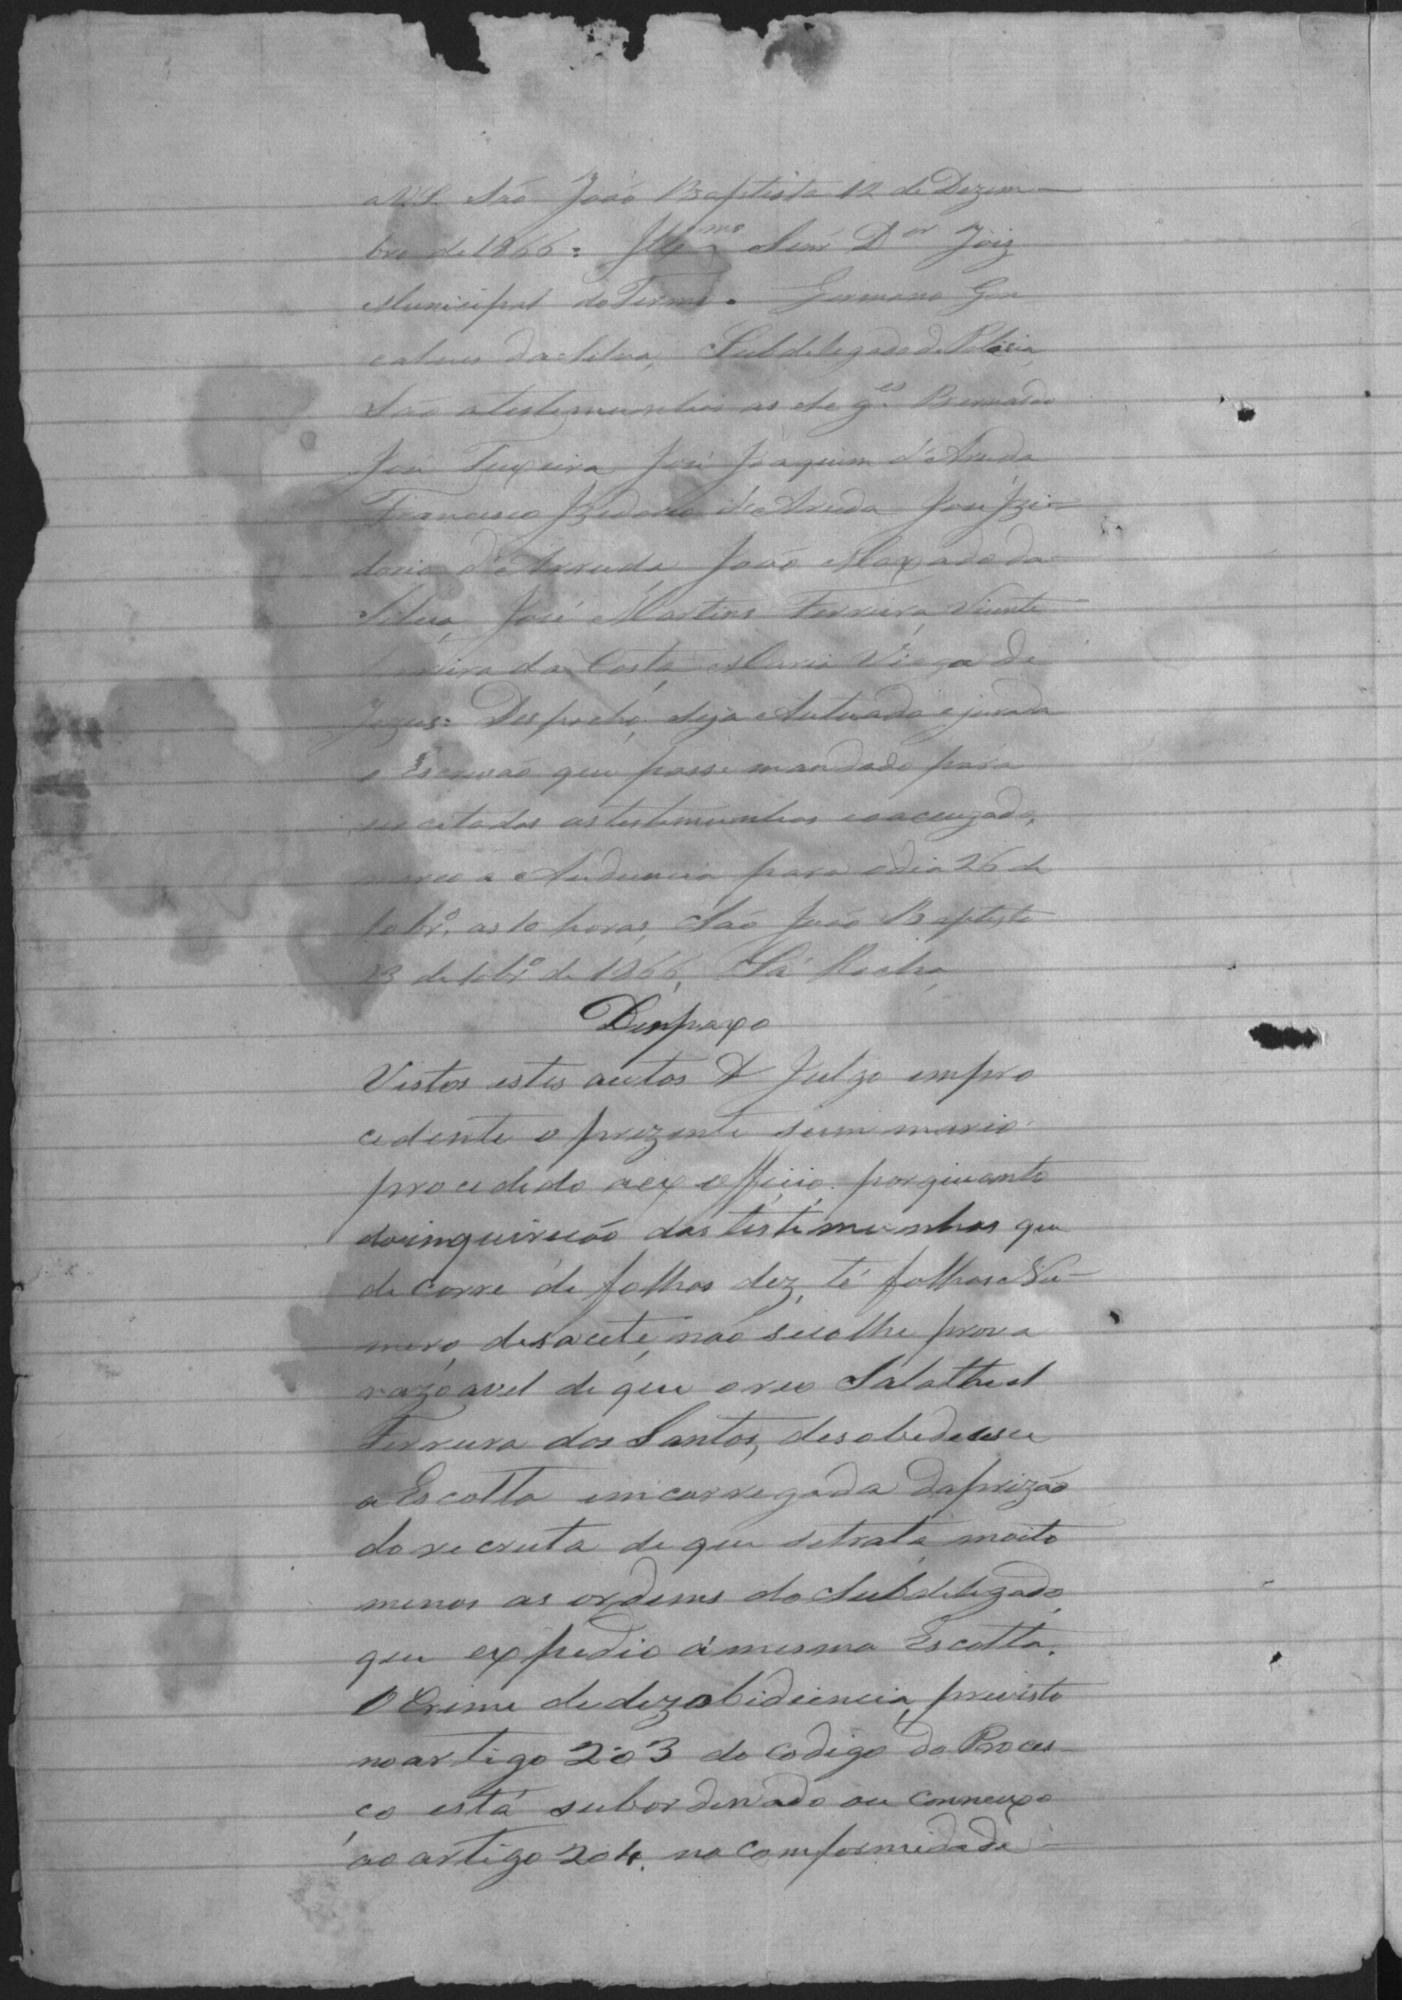 a V.S. São João Baptista 12 de Dezem-
bro de 1866 = Ill.mo Senr. Dor Joiz
Municipal do Termo. Germano Gon
calves da Silva, Subdelegado de Policia,
São atestemunhas as de g.es Bernardo
José Teixeira José Joaquim d'Aruda
Francisco Izidorio d'Aruda José Izi-
dorio d'Arruda, João Maxado da
Silva, José Martins Ferreira, Vicente
da Costa, Maria Viega de
Jezus = Despacho, seja Autuado e jurada
o Escrivão que passe mandado para
ser citados as testemunhas eoacuzado,
marco a Audiencia para odia 26 de
10br.º as 10 horas, São João Baptista
13 de 10br.º de 1866, Sá Rocha,
Despaxo
Vistos estes autos & Julgo empro
cedente o prezente summario
procedido aex officio porquanto
dainquirição das testemunhas que
de corre de folhas dez, té folhas Nu-
mero, desacete, não secolhe prova
razoavel de que oreo Salathiel
Ferreira dos Santos, desobedecesse
a Escolta emcarregada daprizão
do recruta de que setrata moito
menos as ordens do Subdelegado,
que expedio á mesma Escolta.
O Crime dedezobidiencia, previsto
noartigo 203 do codigo do Proces-
ço está subordenado ou connexo
ao artigo 204. na comformidade